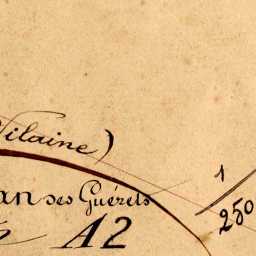 Vilaine)
an des Guérets
A2
1
250